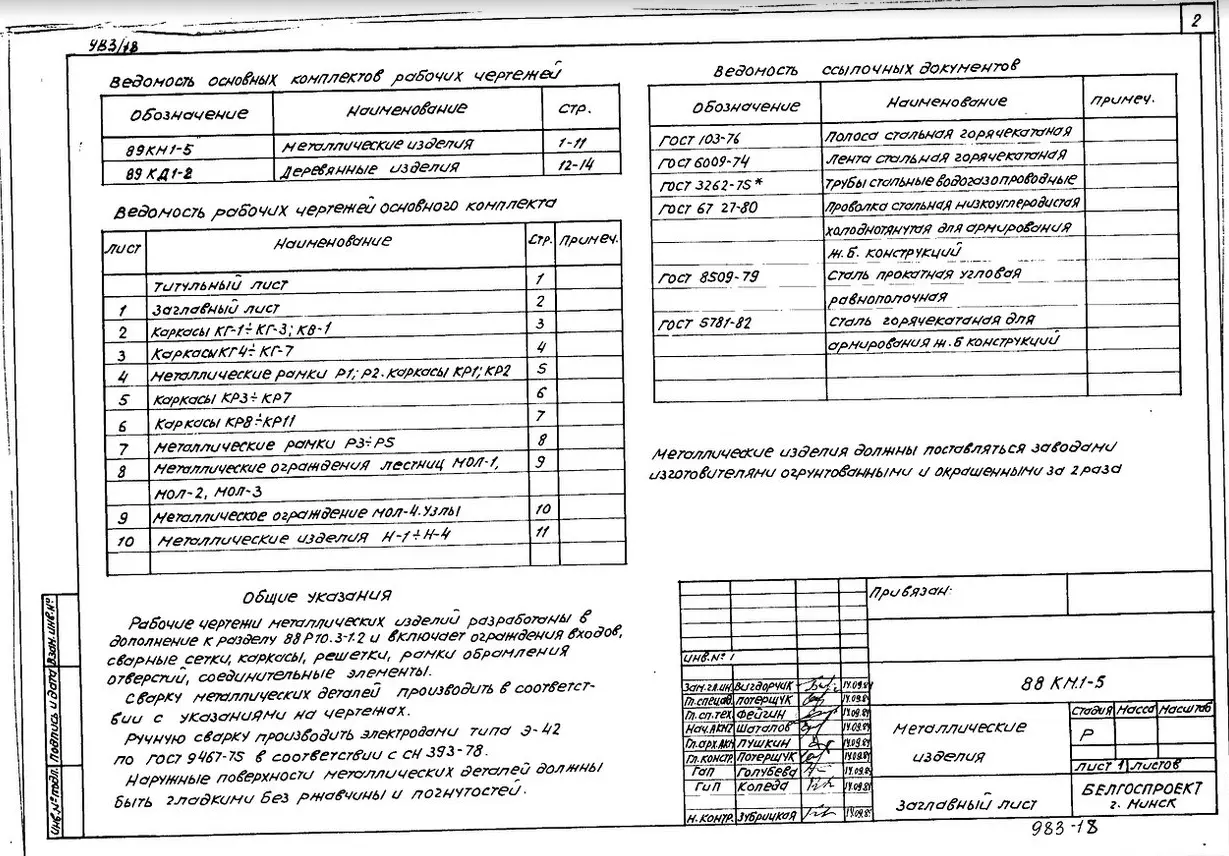 2
983/18
Ведомость основных комплектов рабочих чертежей
Обозначение Наименование Стр.
89КМ1-5 Металлические изделия 1-11
89 КД1-2 Деревянные изделия 12-14
Ведомость рабочих чертежей основного комплекта
Лист Наименование Стр. Примеч.
Титульный лист 1
1 Заглавный лист 2
2 Каркасы КГ-1÷КГ-3; КВ-1 3
3 Каркасы КГ4÷КГ-7 4
4 Металлические рамки Р1; Р2. Каркасы КР1; КР2 5
5 Каркасы КР3÷КР7 6
6 Каркасы КР8÷КР11 7
7 Металлические рамки Р3÷Р5 8
8 Металлические ограждения лестниц МОЛ-1, 9
МОЛ-2, МОЛ-3
9 Металлическое ограждение МОЛ-4. Узлы 10
10 Металлические изделия Н-1÷Н-4 11
Общие указания
Рабочие чертежи металлических изделий разработаны в
дополнение к разделу 88Р10.3-1.2 и включает ограждения входов,
сварные сетки, каркасы, решетки, рамки обрамления
отверстий, соединительные элементы.
Сварку металлических деталей производить в соответст-
вии с указаниями на чертежах.
Ручную сварку производить электродами типа Э-42
по ГОСТ 9467-75 в соответствии с СН 393-78.
Наружные поверхности металлических деталей должны
быть гладкими без ржавчины и погнутостей.
Ведомость ссылочных документов
Обозначение Наименование Примеч.
ГОСТ 103-76 Полоса стальная горячекатаная
ГОСТ 6009-74 Лента стальная горячекатаная
ГОСТ 3262-75* Трубы стальные водогазопроводные
ГОСТ 67 27-80 Проволка стальная низкоуглеродистая
холоднотянутая для армирования
ж.б. конструкций
ГОСТ 8509-79 Сталь прокатная угловая
равнополочная
ГОСТ 5781-82 Сталь горячекатаная для
армирования ж.б конструкций
Металлические изделия должны поставляться заводами
изготовителями огрунтованными и окрашенными за 2 раза
Привязан:
Инв.№ 1
88 КМ.1-5
Зам.гл.ин. Вигдорчик 14.09.84
Гл.спец.ав. Потерщук 14.09.84
Гл.сп.тех. Фейгин 14.09.84
Нач.АКМ7 Шаталов 14.09.84
Гл.арх.АКМ Пушкин 14.09.84
Гл.констр. Потерщук 14.09.84
ГАП Голубева 14.09.84
ГИП Коледа 14.09.84
Н.контр. Зубрицкая 14.09.84
Металлические
изделия
Стадия Масса Масштаб
Р
Лист 1 Листов
Заглавный лист
БЕЛГОСПРОЕКТ
г. Минск
983-18
Инв.№ подл. Подпись и дата Взам.инв.№